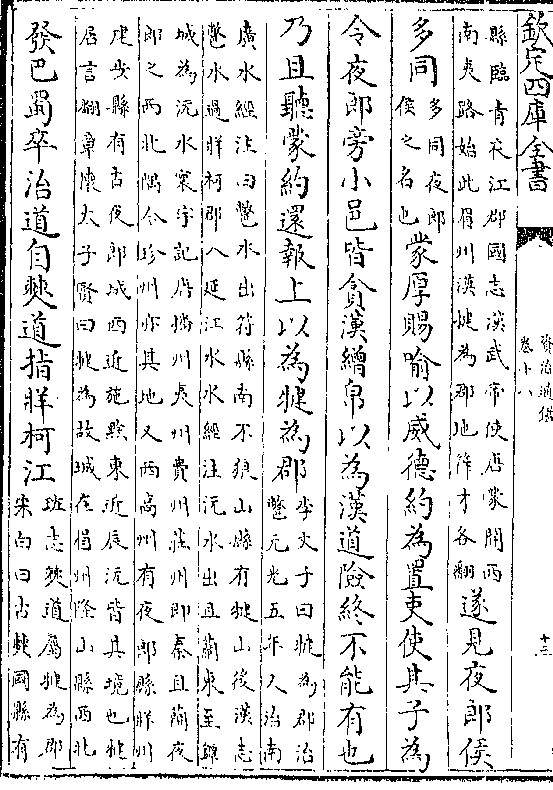 欽定四庫全書
資治通鑑
卷十八
十三
縣臨青衣江郡國志漢武帝使唐蒙開西
南夷路始此眉州漢犍為郡地符才各翻遂見夜郎侯
多同多同夜郎
侯之名也蒙厚賜喻以威德約為置吏使其子為
令夜郎旁小邑皆貪漢繒帛以為漢道險終不能有也
乃且聽蒙約還報上以為犍為郡李文子曰犍為郡治
鄨元光五年又治南
廣水經注曰鄨水出符縣南不狼山縣有犍山後漢志
鄨水過牂柯郡入延江水水經注沅水出且蘭東至鐔
城為沅水寰宇記唐播州夷州費州莊州即秦且蘭夜
郎之西北隅今珍州亦其地又西高州有夜郎縣牂州
建安縣有古夜郎城西近施黔東近辰沅皆其境也犍
居言翻章懷太子賢曰犍為故城在眉州隆山縣西北
發巴蜀卒治道自僰道指牂柯江班志僰道屬犍為郡
宋白曰古僰國縣有